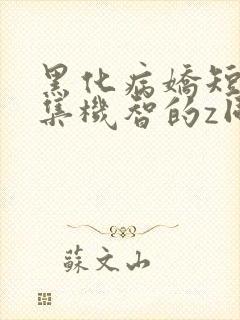 黑化病嬌短
集機智的z
蘇文山